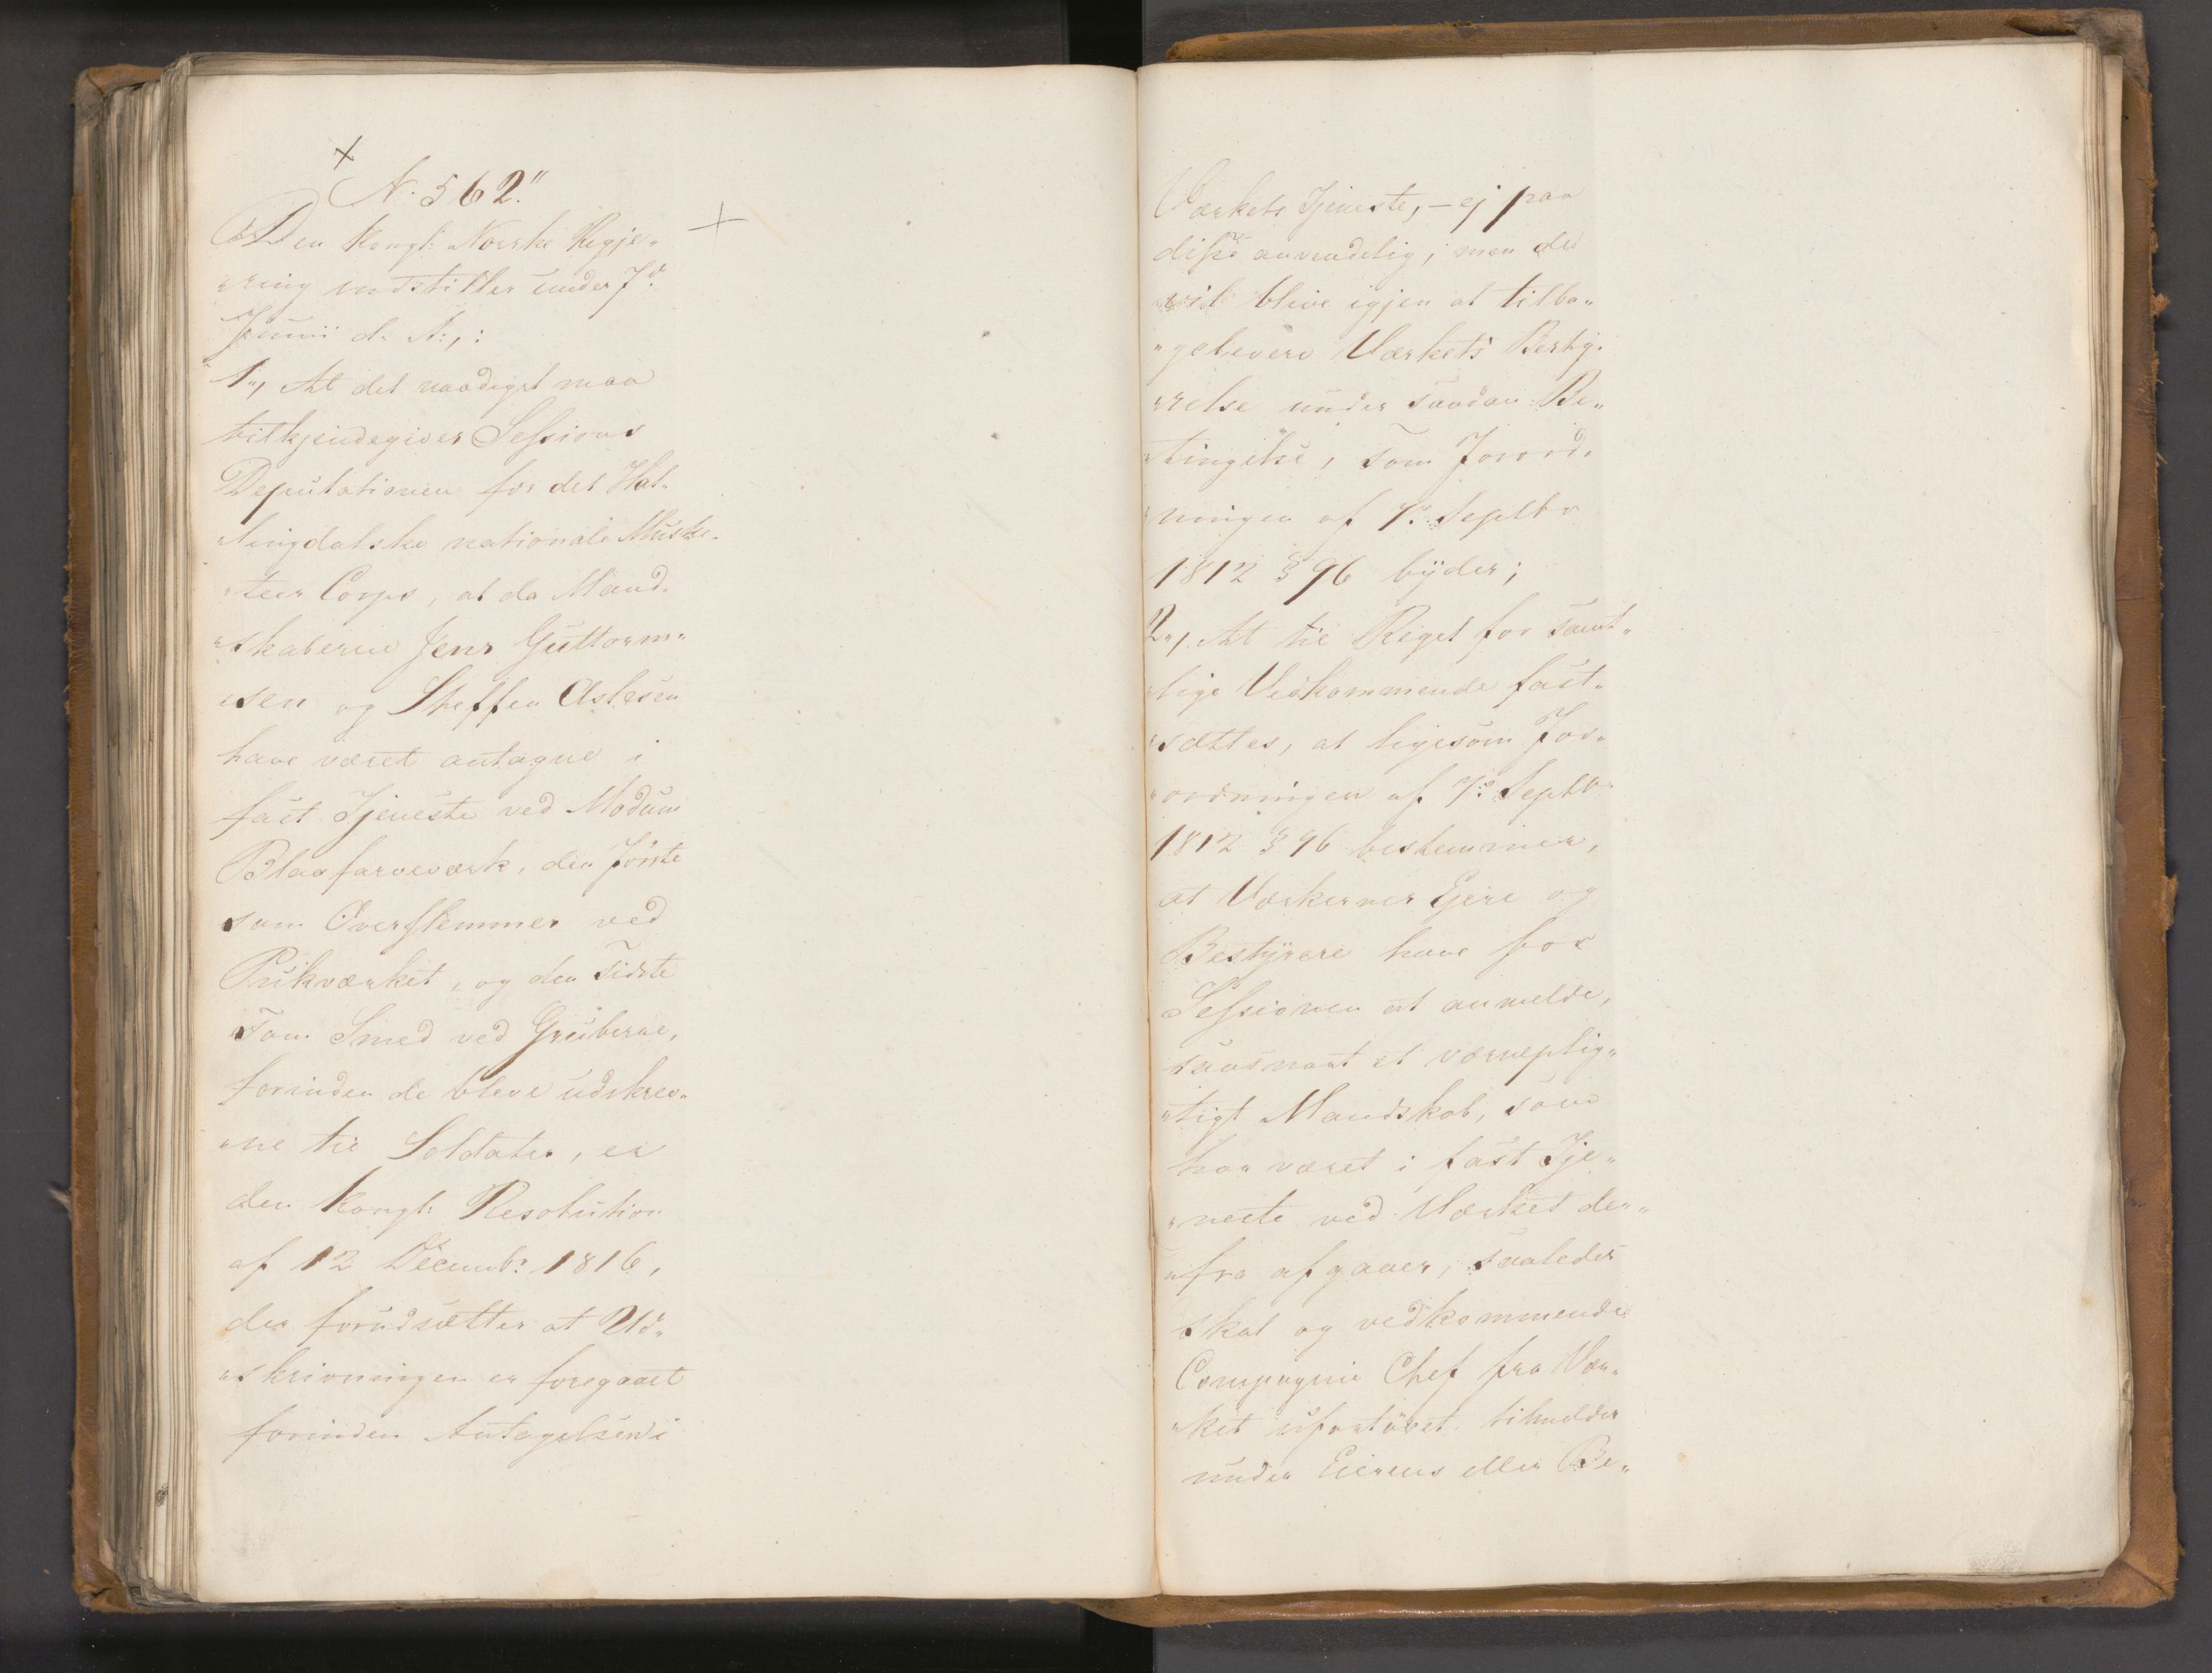 N. 562."
Den Kongl: Norske Regje„
„ring indstiller under 7de
Junii d. A:,:
1„, At det naadigst maa
tilkjendegives Sessions
Deputationen for det Hal„
„lingdalske nationale Muske„
„teer Corps, at da Mand„
„skaberne Jens Guttorm„
„sen og Steffen Aslesen
have været antagne i
fast Tjeneste ved Modum
Blaafarveværk, den Første
som Overstemmer ved
Pukværket, og den Sidste
som Smed ved Gruberne,
forinden de bleve udskrev„
„ne til Soldater, er
den Kongl: Resolution
af 12 Decemb: 1816,
der forudsætter at Ud„
„skrivningen er foregaaet
forinden Antagelsen i
Værkets Tjeneste, – ej paa
disse anvendelig; men de
vil blive igjen at tilba„
„gelevere Værkets Besty„
„relse under saadan Be„
„tingelse, som Forord„
„ningen af 7de Septbr
1812 § 96 byder;
2„, At til Regel for samt„
„lige Vedkommende fast„
„sættes, at ligesom For„
„ordningen af 7de Septbr
1812 § 96 bestemmer,
at Værkernes Ejere og
Bestyrere have for
Sessionen at anmelde,
saasnart et værneplig„
„tigt Mandskab, som
har været i fast Tje„
„neste ved Værket der„
„fra afgaaer, saaledes
skal og vedkommende
Compagnie Chef fra Vær„
„ket ufortøvet tilmeldes
under Eierens eller Be„